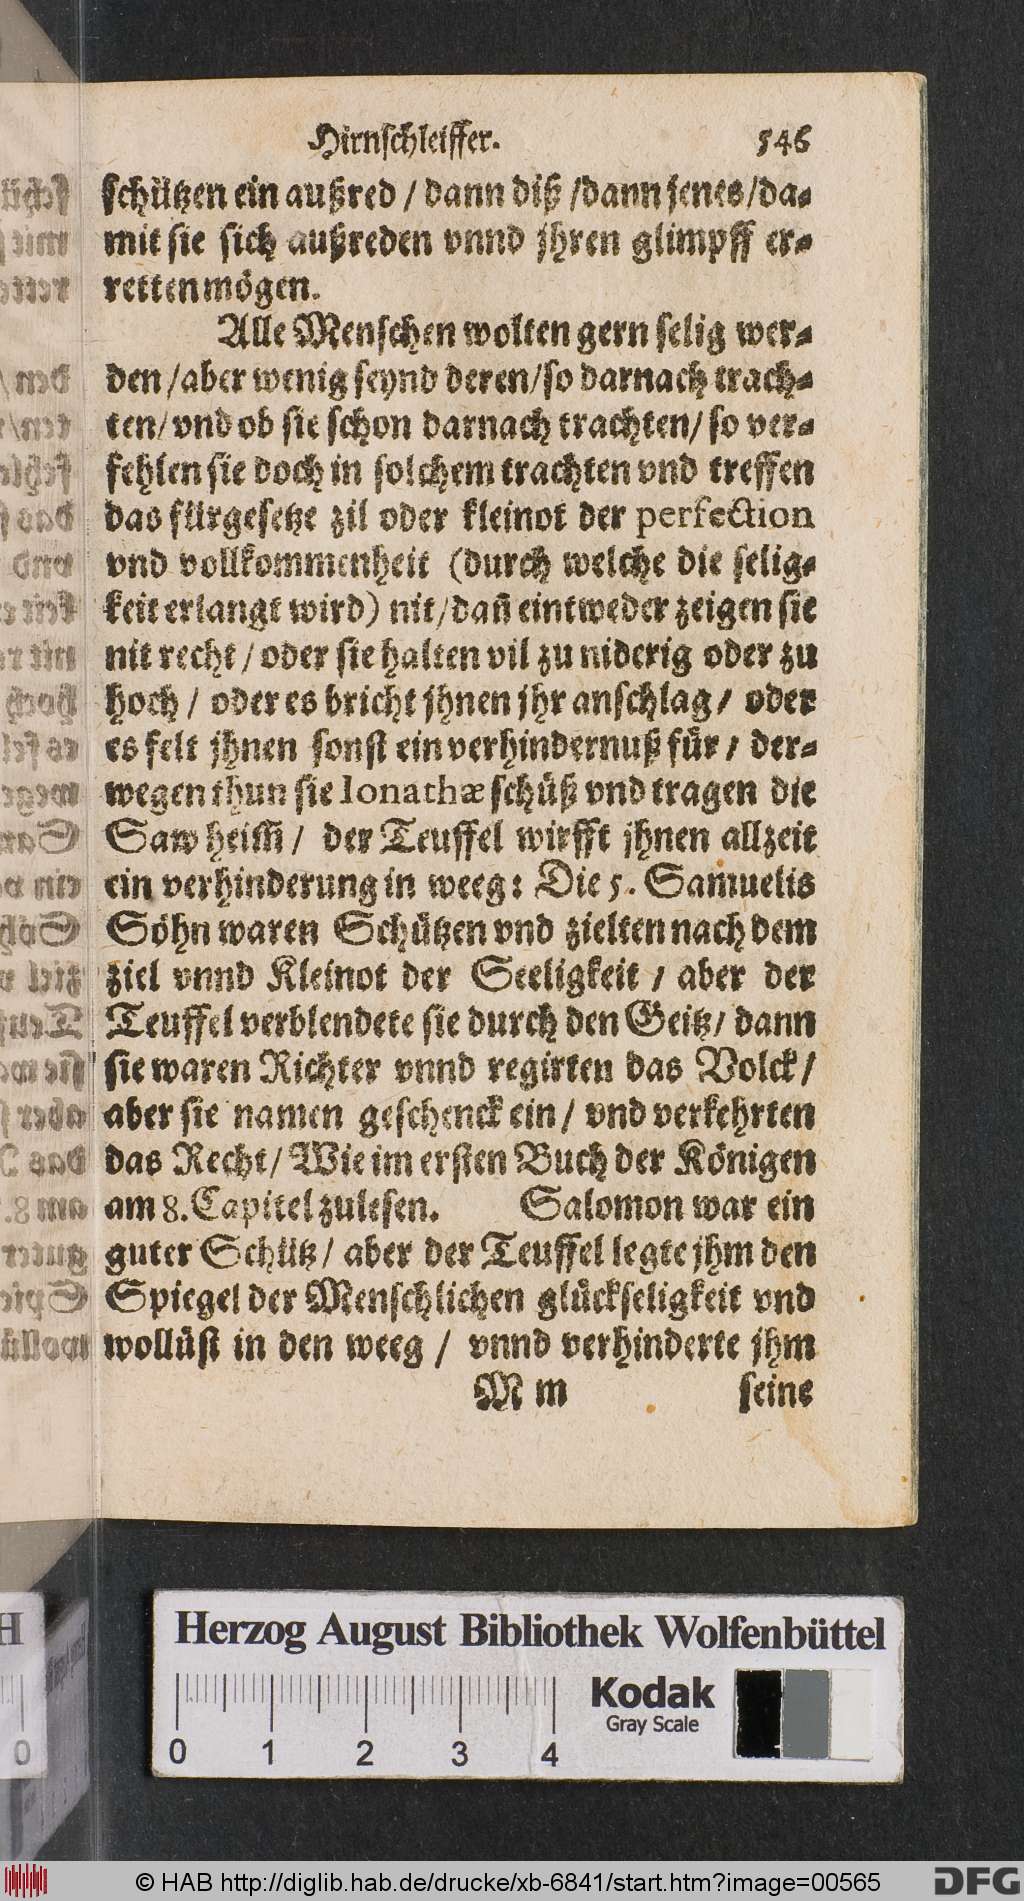 Hirnschleiffer. 546
schützen ein außred / dann diß / dann jenes / da-
mit sie sich außreden vnnd jhren glimpff er-
retten mögen.
Alle Menschen wolten gern selig wer-
den / aber wenig seynd deren / so darnach trach-
ten / vnd ob sie schon darnach trachten / so ver-
fehlen sie doch in solchem trachten vnd treffen
das fürgesetze zil oder kleinot der perfection
vnd vollkommenheit (durch welche die selig-
keit erlangt wird) nit / dañ eintweder zeigen sie
nit recht / oder sie halten vil zu niderig oder zu
hoch / oder es bricht jhnen jhr anschlag / oder
es felt jhnen sonst ein verhindernuß für / der-
wegen thun sie Ionathæ schüß vnd tragen die
Saw heim / der Teuffel wirfft jhnen allzeit
ein verhinderung in weeg: Die 5. Samuelis
Söhn waren Schützen vnd zielten nach dem
ziel vnnd Kleinot der Seeligkeit / aber der
Teuffel verblendete sie durch den Geitz / dann
sie waren Richter vnnd regirten das Volck /
aber sie namen geschenck ein / vnd verkehrten
das Recht / Wie im ersten Buch der Königen
am 8. Capitel zulesen. Salomon war ein
guter Schütz / aber der Teuffel legte jhm den
Spiegel der Menschlichen glückseligkeit vnd
wollüst in den weeg / vnnd verhinderte jhm
M m seine
Herzog August Bibliothek Wolfenbüttel
Kodak
Gray Scale
0 1 2 3 4
© HAB http://diglib.hab.de/drucke/xb-6841/start.htm?image=00565
DFG